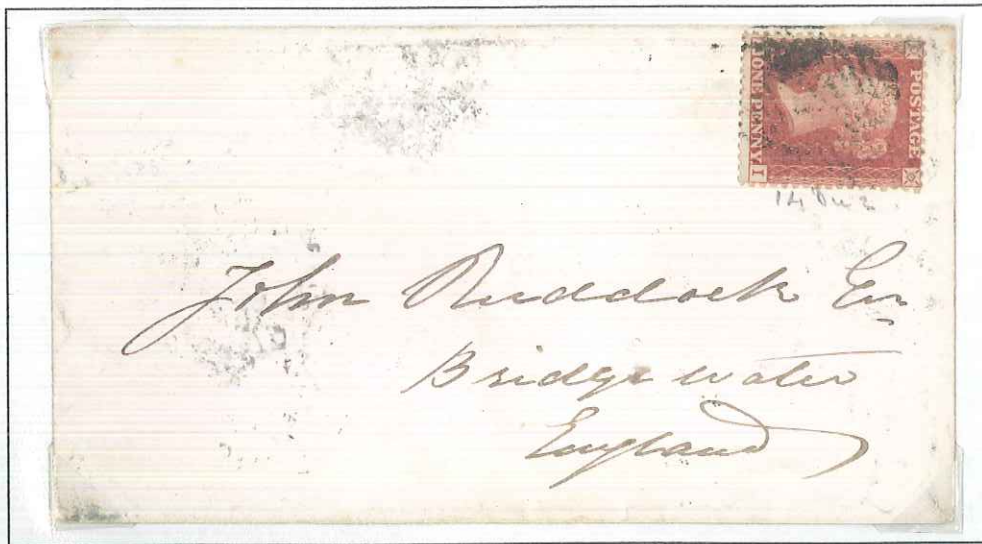 POSTAGE
ONE PENNY
I
John Ruddock Esq
Bridgewater
England